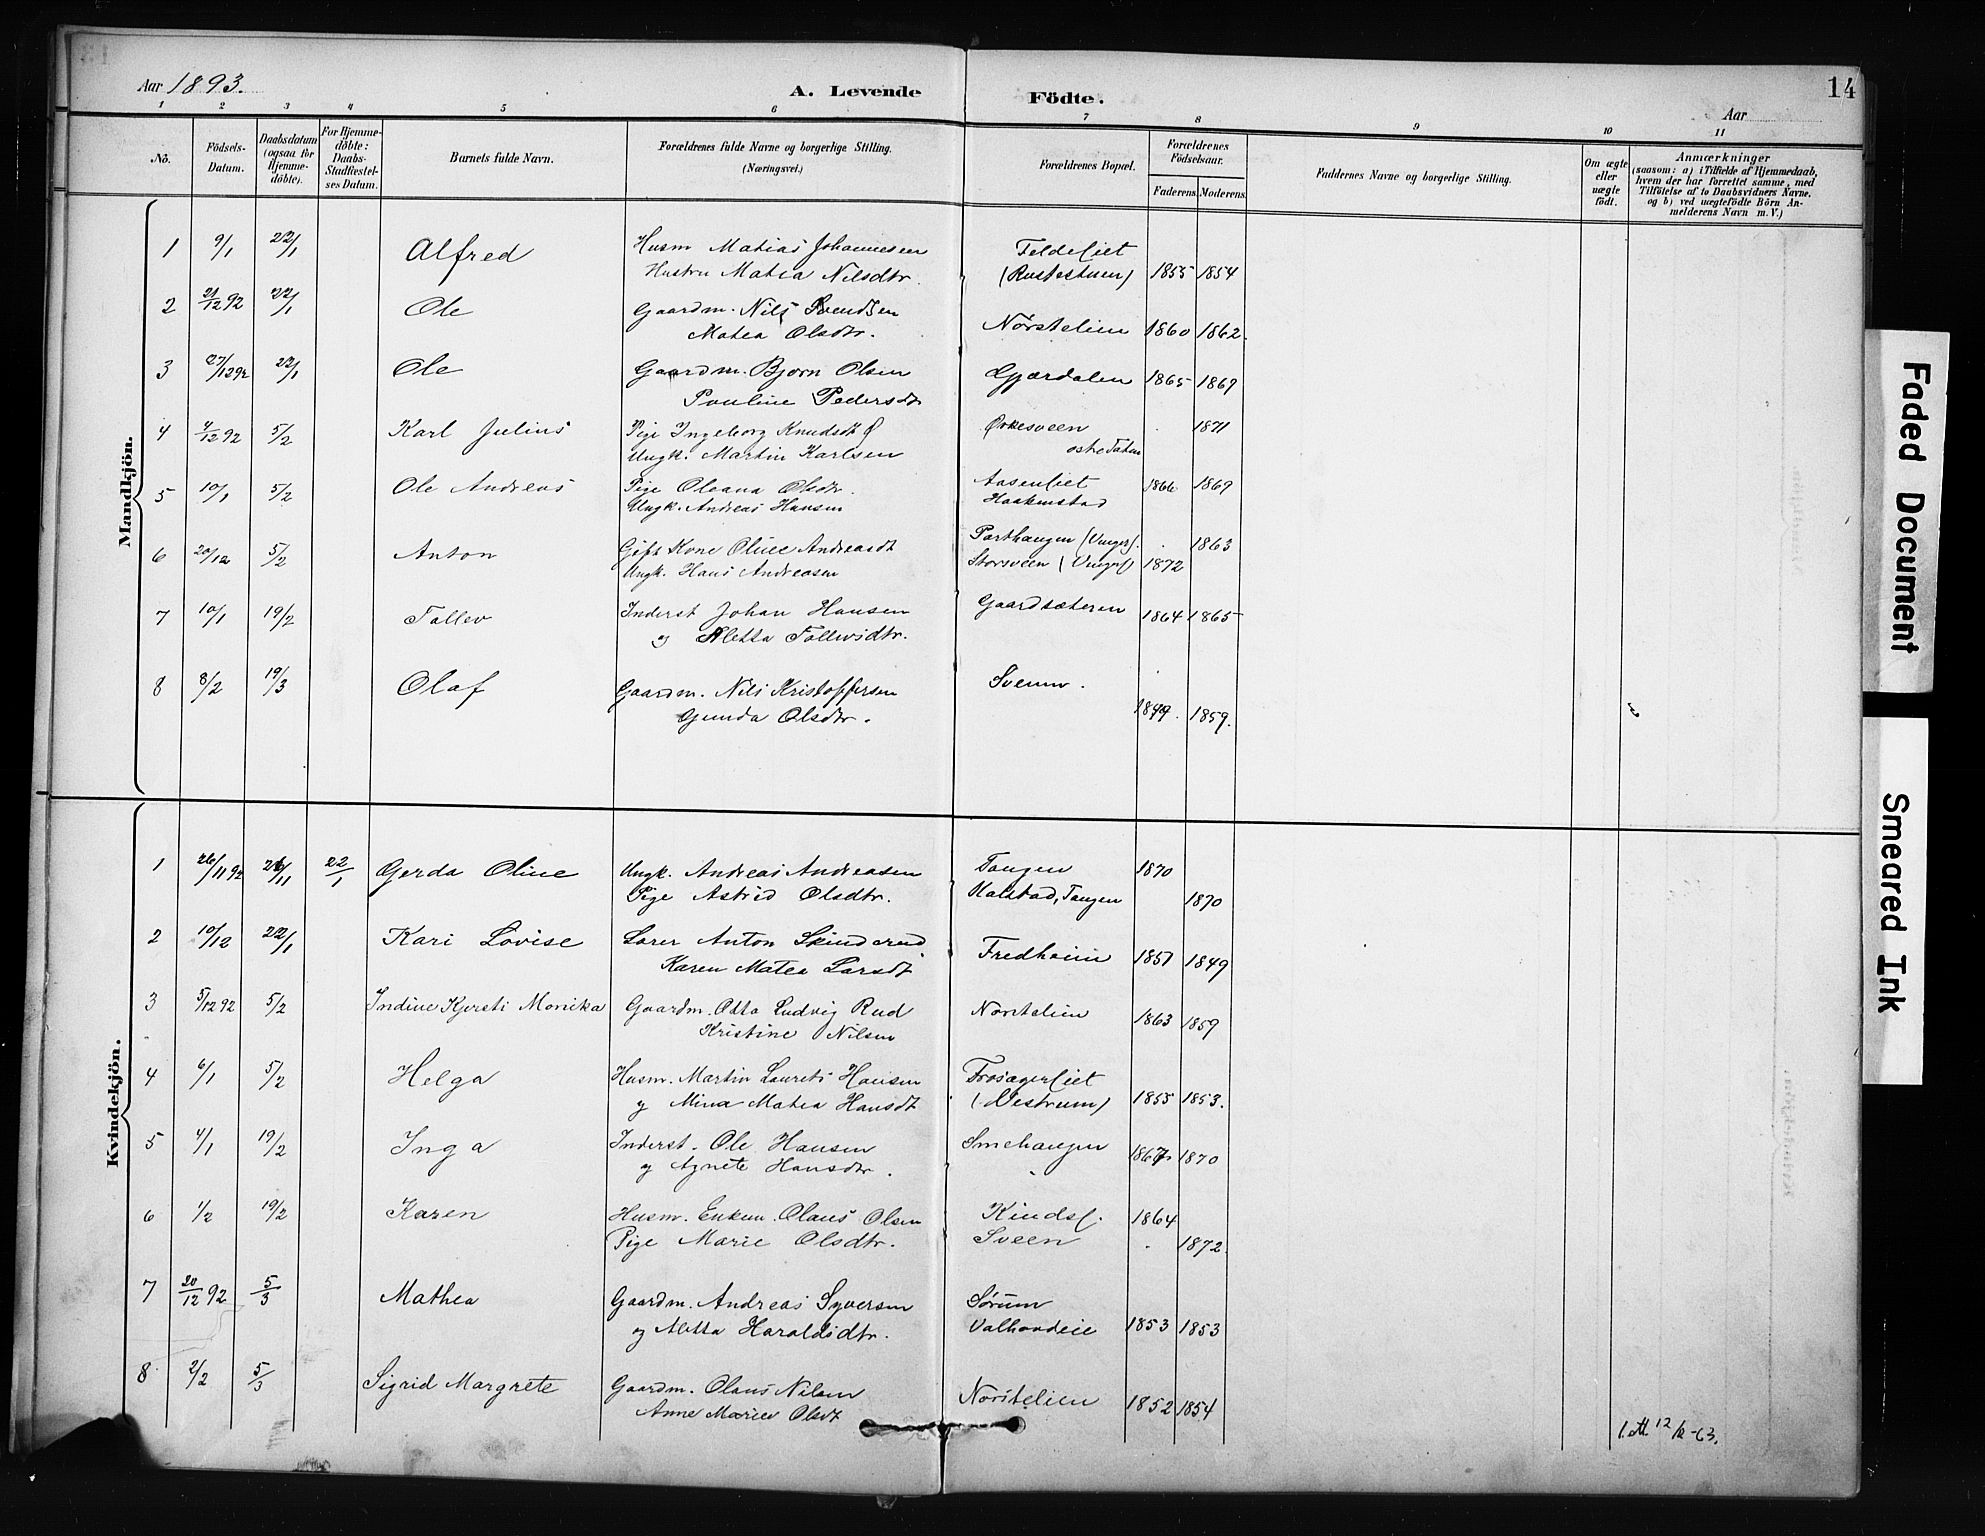 14
Aar 1893.
A. Levende Födte.
Aar
1 2 3 4 5 6 7 8 9 10 11
No.
Födsels-Datum.
Daabsdatum (ogsaa for Hjemme-döbte).
For Hjemme-döbte: Daabs-Stadfæstel-ses Datum.
Barnets fulde Navn.
Forældrenes fulde Navne og borgerlige Stilling.
(Næringsvei.)
Forældrenes Bopæl.
Forældrenes Födselsaar.
Faderens. Moderens.
Faddernes Navne og borgerlige Stilling.
Om ægte eller uægte födt.
Anmærkninger
(saasom: a) i Tilfælde af Hjemmedaab,
hvem der har forrettet samme, med
Tilföielse af to Daabsvidners Navne.
og b) ved uægtefödte Börn An-
melderens Navn m. V.)
Mandkjön.
1 9/1 22/1 Alfred Husm Matias Johannesen Feldeliet
Hustru Matea Nilsdtr. (Rustestuen) 1855 1854
2 21/12 92 22/1 Ole Gaardm. Nils Svendsen
Matea Olsdtr. Nørstelien 1860 1862.
3 27/12 92 22/1 Ole Gaardm. Bjørn Olsen Gjærdalen 1865 1869
Pauline Pedersdt
4 4/12 92 5/2 Karl Julius Pige Ingeborg Knudsdt Ørkesveen 1871
Ungk. Martin Karlsen østre
5 10/1 5/2 Ole Andreas Pige Oleana Olsdtr. Aasenliet 1866 1869
Ungk. Andreas Hansen Haakenstad
6 20/12 5/2 Anton Gift Kone Oline Andreasdt Parthaugen (Vinger). 1863
Ungk. Hans Andreasen Storsveen (Vinger) 1872
7 10/1 19/2 Tollev Inderst Johan Hansen Gaardsæteren 1864 1865
og Aletta Tollevsdtr.
8 8/2 19/3 Olaf Gaardm. Nils Kristoffersen Sveum.
Gunda Olsdtr. 1849. 1859.
Kvindekjön.
1 26/11 92 26/11 22/1 Gerda Oline Ungk. Andreas Andreasen Tangen 1870
Pige Astrid Olsdtr. Kalstad, Tangen 1870
2 10/12 22/1 Kari Lovise Lærer Anton Skinderud
Karen Matea Larsdt Fredheim 1857 1849
3 5/12 92 5/2 Indine Kjersti Monika Gaardm. Otto Ludvig Rud Norstelien 1863 1859
Kristine Nilsen
4 6/1 5/2 Helga Husm. Martin Laurits Hansen Frosagerliet
og Mina Matea Hansdt (Vestrum) 1855 1853.
5 4/1 19/2 Inga Inderst. Ole Hansen Smehaugen 1867 1870
og Agnete Hansdtr.
6 1/2 19/2 Karen Husm. Enkem. Olaus Olsen Kindsl. 1864
Pige Marie Olsdtr. Sveen 1872
7 20/12 92 5/3 Mathea Gaardm. Andreas Syversen Sørum
og Aletta Haraldsdtr. Valhovdeie 1853 1853
8 2/2 5/3 Sigrid Margrete Gaardm. Olaus Nilsen Norstelien 1852 1854
Anne Marie Olsdt
Faded Document
Smeared Ink